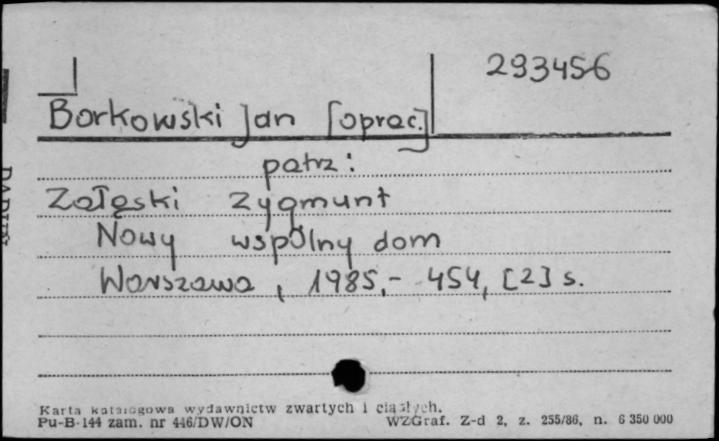 293456
Borkowski Jan [oprac.]
patrz:
Załęski Zygmunt
Nowy wspólny dom
Warszawa, 1985,- 454, [2] s.
Karta katalogowa wydawnictw zwartych i ciągłych.
Pu-B-144 zam. nr 446/DW/ON
WZGraf. Z-d 2, z. 255/86, n. 6 350 000